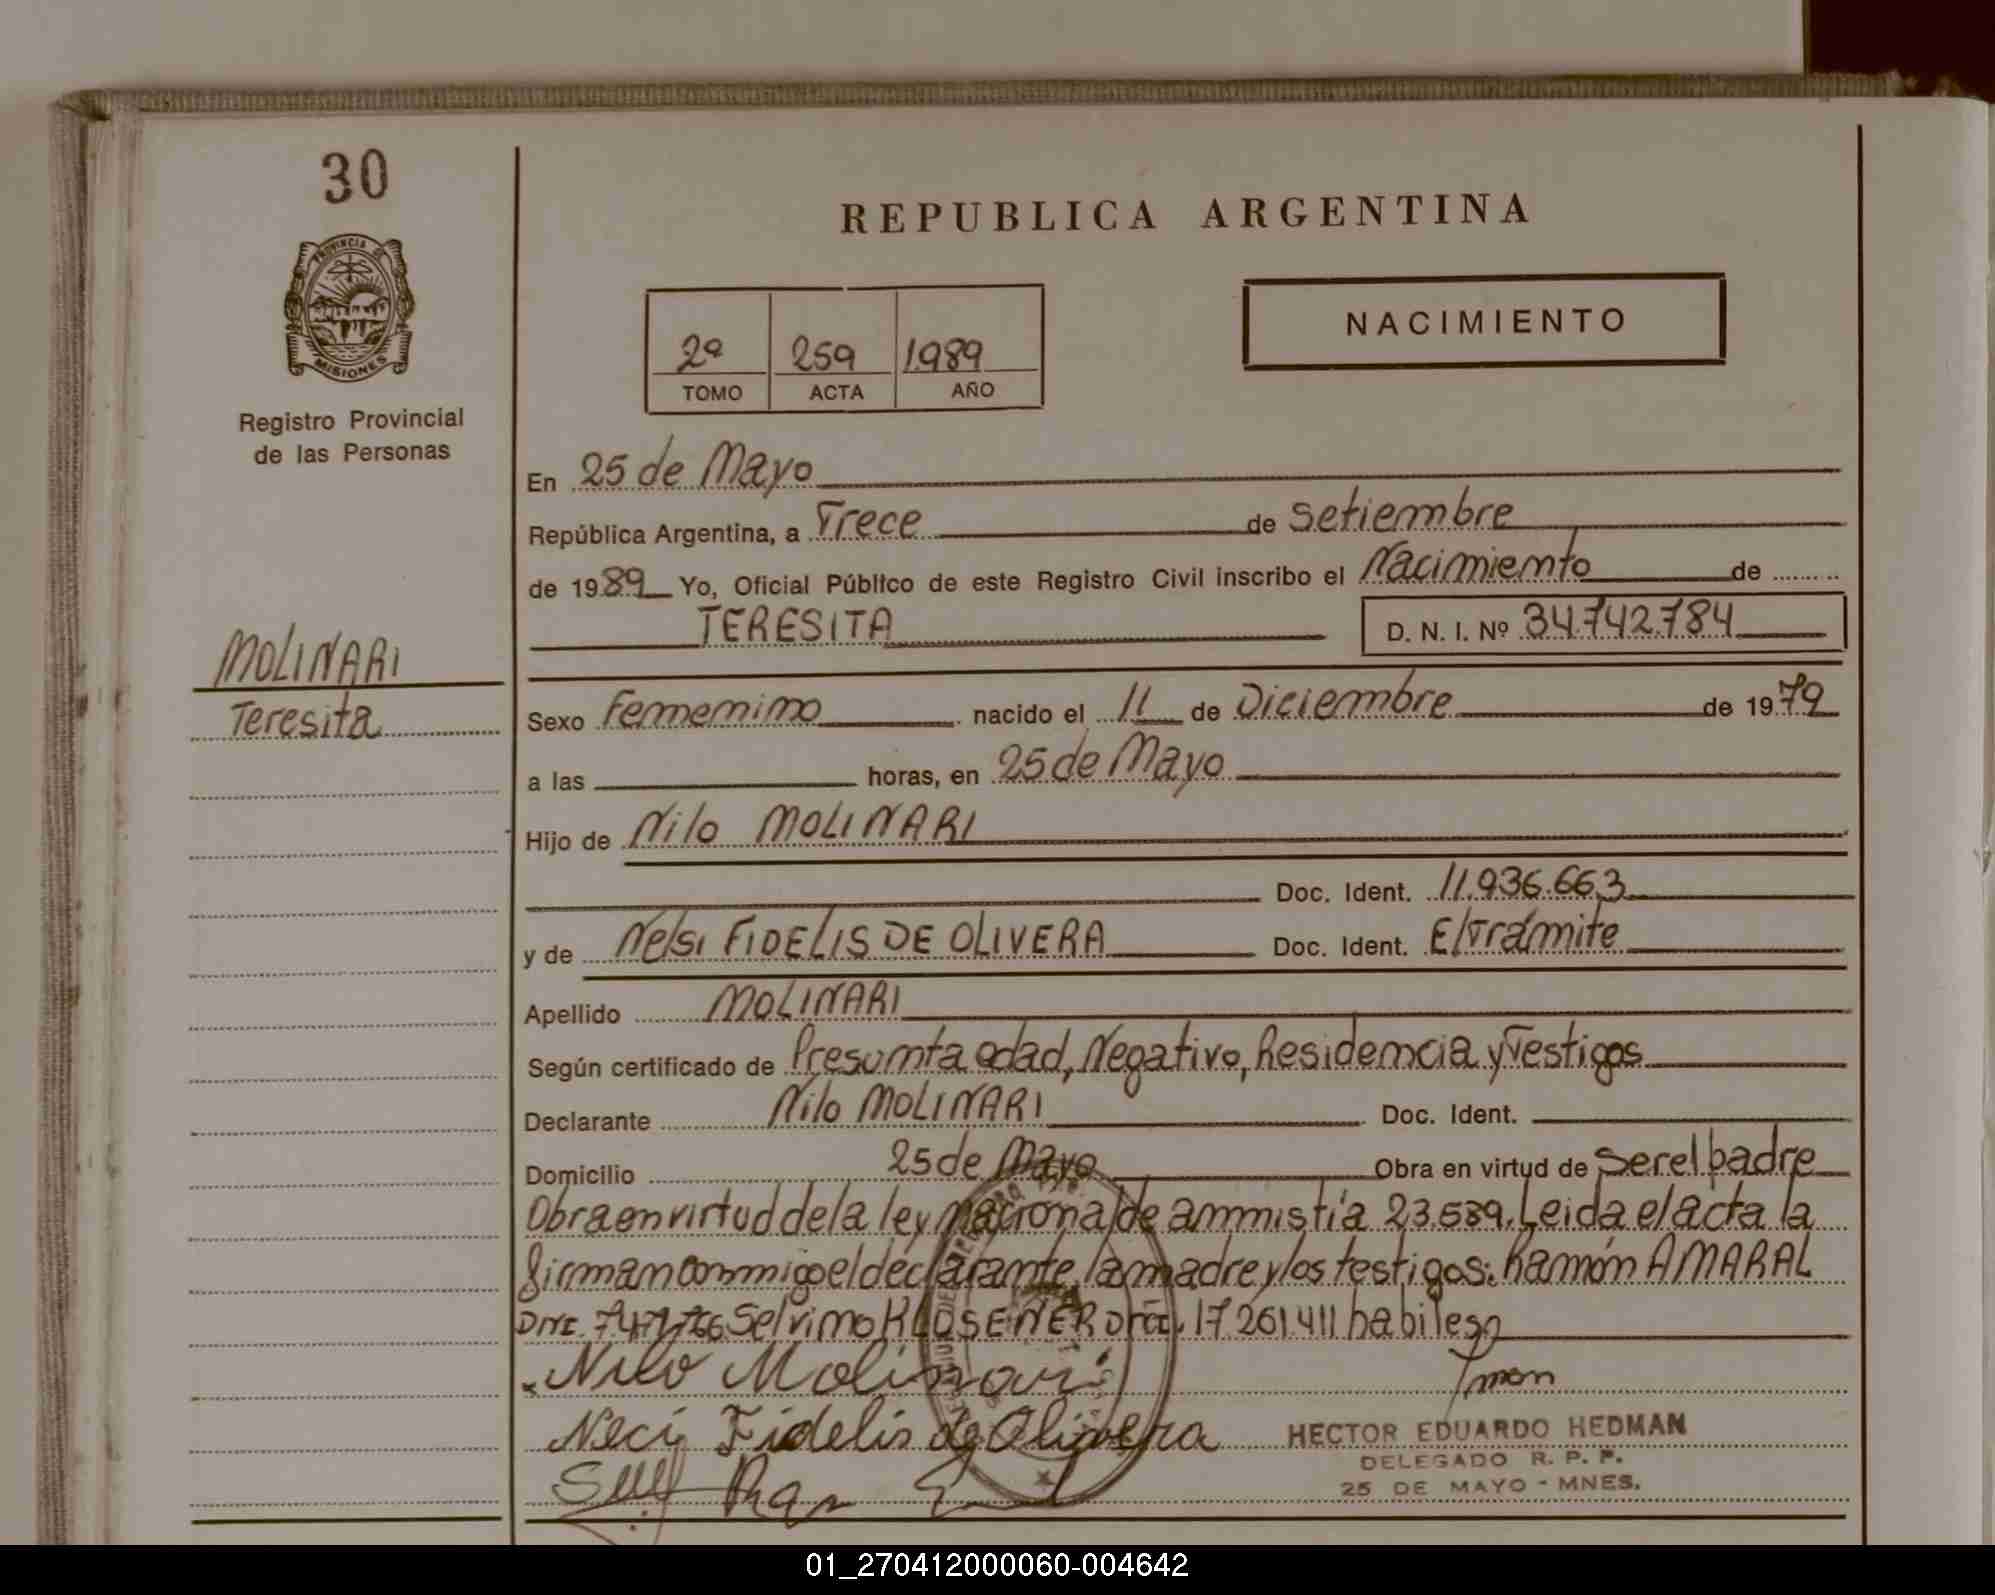 30
REPUBLICA ARGENTINA
PROVINCIA DE
MISIONES
NACIMIENTO
2º 259 1989
TOMO ACTA AÑO
Registro Provincial
de las Personas
En 25 de Mayo
República Argentina, a Trece de Setiembre
de 1989 Yo, Oficial Público de este Registro Civil inscribo el Nacimiento de
TERESITA D. N. I. Nº 34.742.784
MOLINARI
Teresita
Sexo Femenino nacido el 11 de Diciembre de 1979
a las horas, en 25 de Mayo
Hijo de Nilo MOLINARI
Doc. Ident. 11.936.663
y de Nelsi FIDELIS DE OLIVERA Doc. Ident. E/Trámite
Apellido MOLINARI
Según certificado de Presunta edad, Negativo, Residencia y Testigos
Declarante Nilo MOLINARI Doc. Ident.
Domicilio 25 de Mayo Obra en virtud de Ser el padre
Obra en virtud de la ley Nacional de amnistía 23.589. Leida el acta la
firman conmigo el declarante, la madre y los testigos: Ramón AMARAL
Selvino KLOSENER 17.261.411 habiles
Nilo Molinari
Neci Fidelis de Olivera
HECTOR EDUARDO HEDMAN
DELEGADO R. P. P.
25 DE MAYO - MNES.
01_270412000060-004642